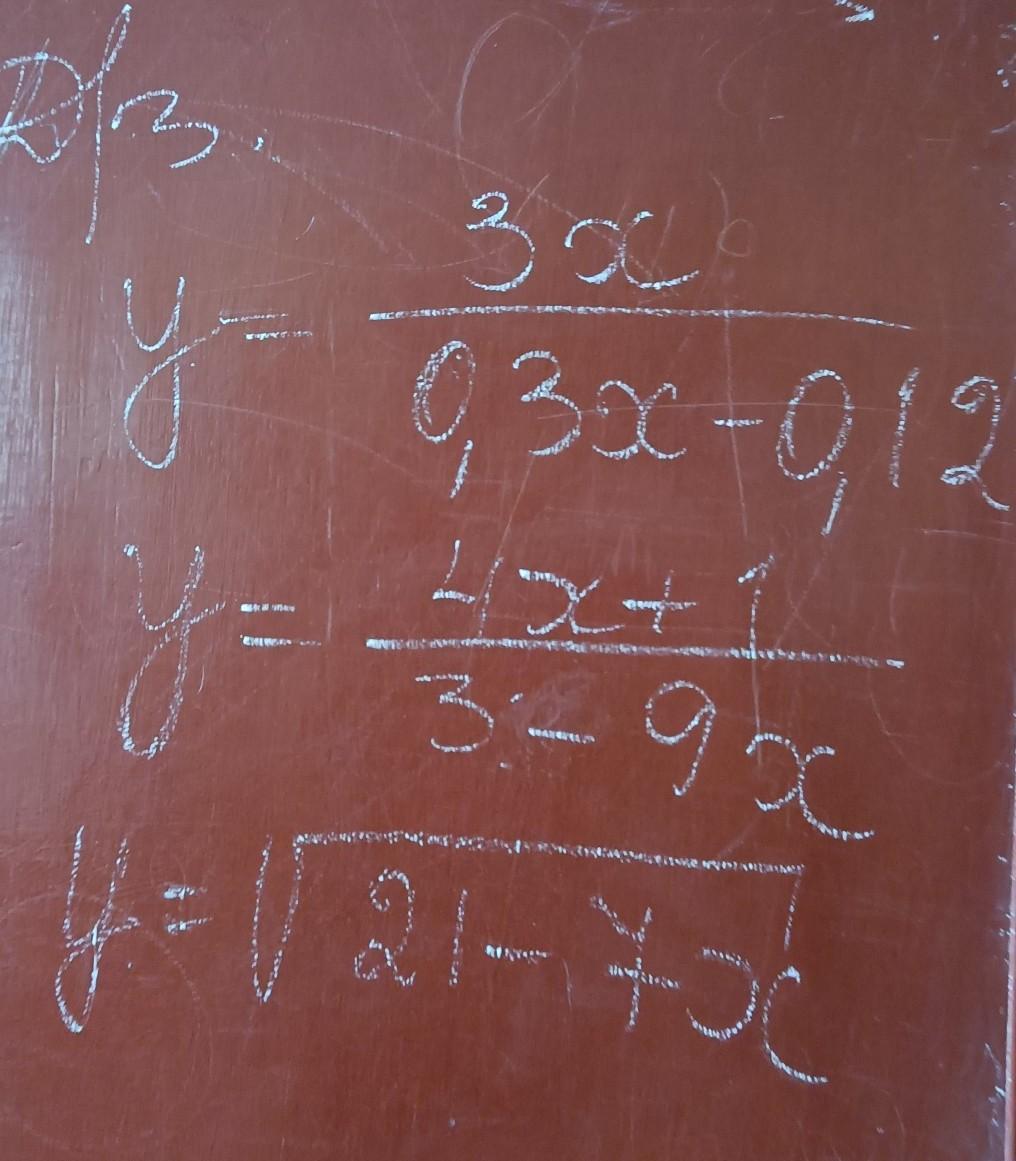 Д/з.
y = 3x / 0,3x - 0,12
y = 4x + 1 / 3 - 9x
y = √21 - 7x